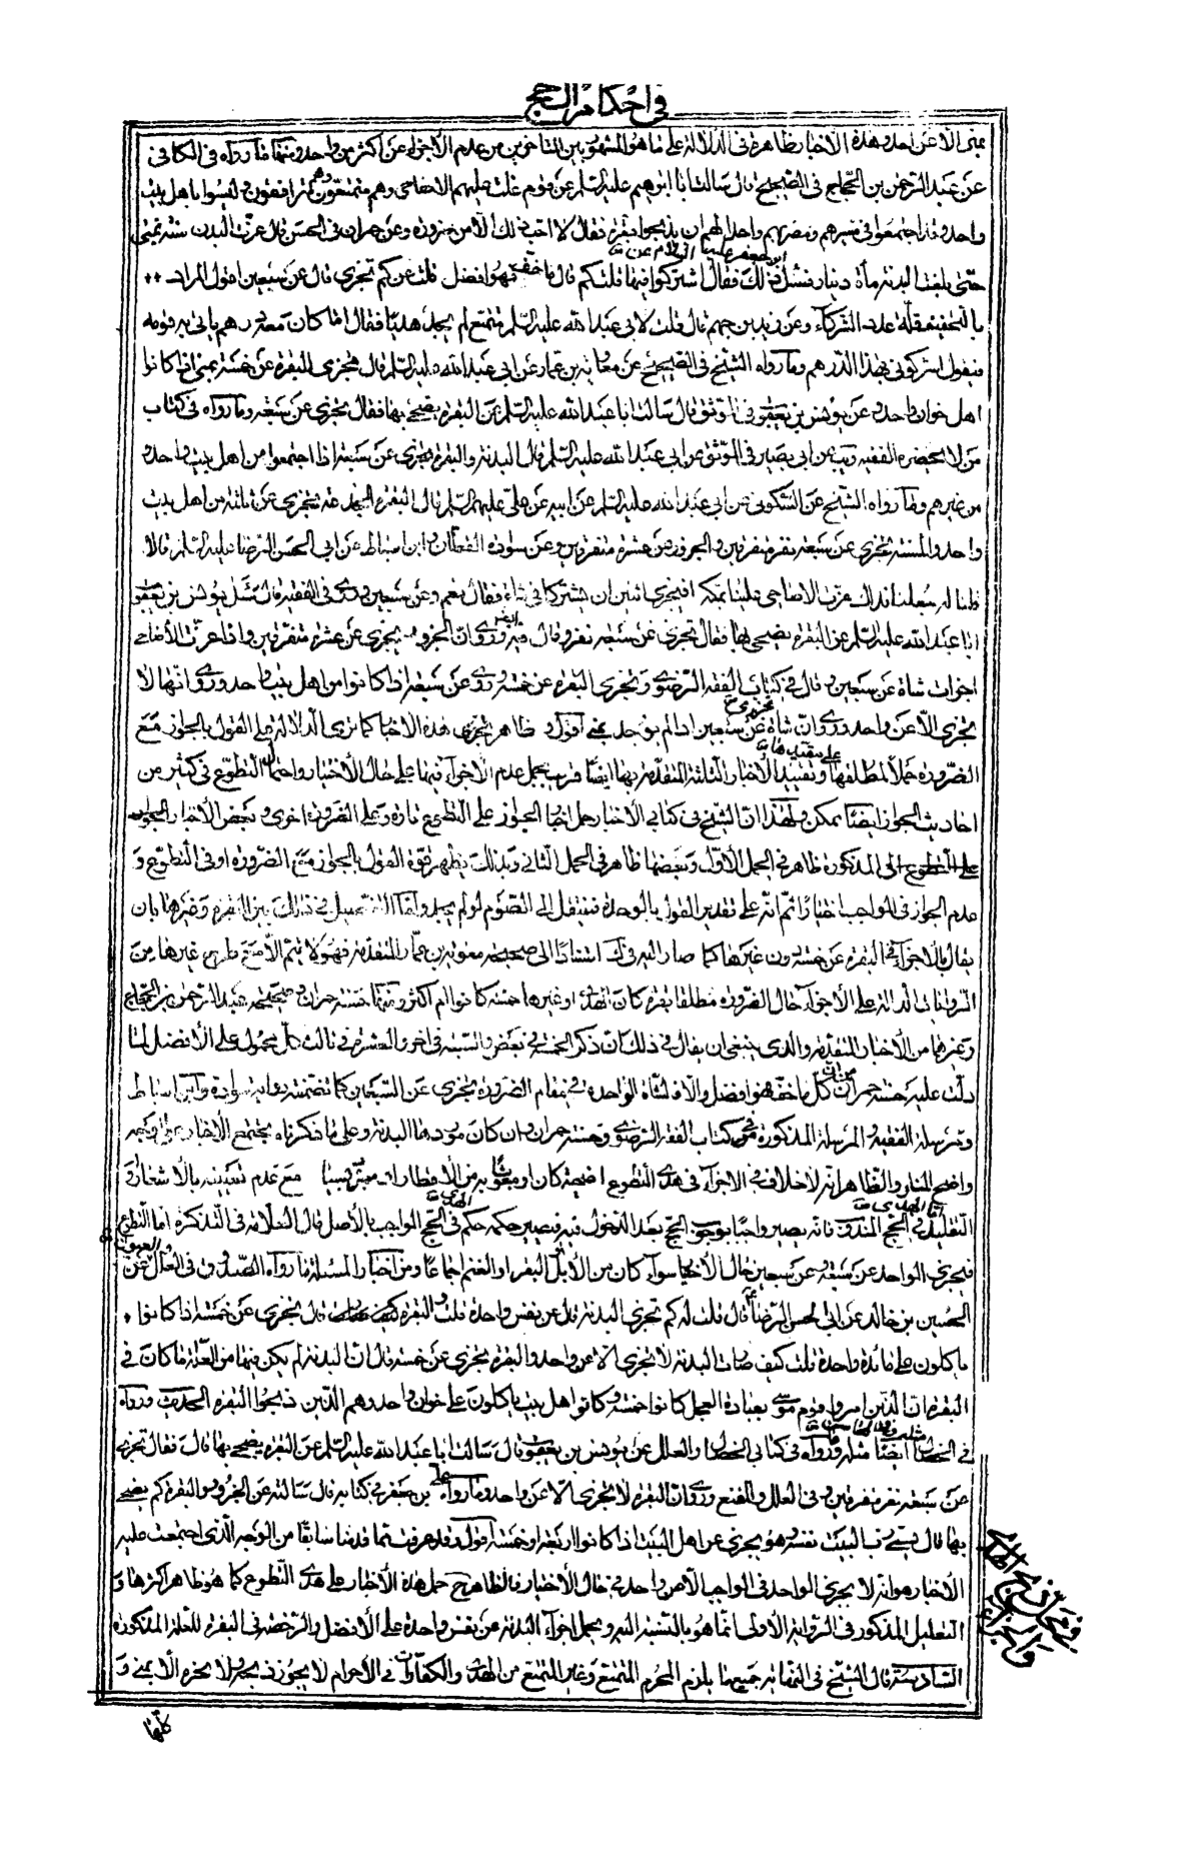 في احكام الحج
بمنى الا عن واحد وهذه الاخبار ظاهرة في الدلالة على ما هو المشهور بين المتاخرين من عدم الاجزاء عن اكثر من واحد ومنها ما رواه في الكافي
عن عبد الرحمن بن الحجاج في الصحيح قال سالت ابا ابرهيم عليه السلم عن قوم غلت عليهم الاضاحي وهم متمتعون وهم مترافقون وليسوا باهل بيت
واحد وقد اجتمعوا في مسيرهم ومضربهم واحد الهم ان يذبحوا بقرة فقال لا احب ذلك الا من ضرورة وعن حمران في الحسن قال عزت البدن سنة بمنى
حتى بلغت البدنة مأة دينار فسئل ابو جعفر عليه السلام عن ذلك فقال اشتركوا فيها قلت كم قال ما خف فهو افضل قلت عن كم تجزي قال عن سبعين اقول المراد
بالخفية قلة عدد الشركاء وعن زيد بن جهم قال قلت لابي عبد الله عليه السلم متمتع لم يجد هديا فقال اما كان معه درهم ياتي به قومه
فيقول اشركوني بهذا الدرهم وما رواه الشيخ في الصحيح عن معاوية بن عمار عن ابي عبد الله عليه السلم قال تجزي البقرة عن خمسة بمنى اذا كانوا
اهل خوان واحد وعن يونس بن يعقوب في الموثق قال سالت ابا عبد الله عليه السلم عن البقرة يضحي بها فقال تجزي عن سبعة وما رواه في كتاب
من لا يحضره الفقيه عن ابي بصير في الموثق عن ابي عبد الله عليه السلم قال البدنة والبقرة تجزي عن سبعة اذا اجتمعوا من اهل بيت واحد و
من غيرهم وما رواه الشيخ عن السكوني عن ابي عبد الله عليه السلم عن ابيه عن علي عليهم السلم قال البقرة الجذعة تجزي عن ثلثة من اهل بيت
واحد والمسنة تجزي عن سبعة نفر متفرقين والجزور عن عشرة متفرقين وعن سوادة القطان وابن اسباط عن ابي الحسن الرضا عليه السلم قالا
قلنا له جعلنا فداك عزت الاضاحي علينا بمكة افيجزي اثنين ان يشتركا في شاة فقال نعم وعن سبعين وروى في الفقيه قال سئل يونس بن يعقوب
ابا عبد الله عليه السلم عن البقرة يضحي بها فقال تجزي عن سبعة نفر وقال فيه ايضا وروي ان الجزور يجزي عن عشرة متفرقين واذا عزت الاضاحي
اجزات شاة عن سبعين وقال في كتاب الفقه الرضوي وتجزي البقرة عن خمسة وروي عن سبعة اذا كانوا من اهل بيت واحد وروي انها لا
تجزي الا عن واحد وروي ان شاة تجزي عن سبعين اذا لم يوجد بمنى اقول و ظاهر هذه الاخبار كما ترى الدلالة على القول بالجواز مع
الضرورة حملا لمطلقها على مقيدها وتقييد الاخبار الثلثة المتقدمة بها ايضا قريب بحمل عدم الاجزاء فيها على حال الاختيار واحتمال التطوع في كثير من
احاديث الجواز ايضا ممكن ولهذا ان الشيخ في كتابي الاخبار حمل اخبار الجواز على التطوع تارة وعلى الضرورة اخرى وبعض الاخبار
المذكورة ظاهر في الحمل الاول وبعضها ظاهر في الحمل الثاني وبذلك يظهر قوة القول بالجواز مع الضرورة او في التطوع و
عدم الجواز في الواجب اختيارا ثم انه على تقدير القول بالوحدة فينتقل الى الصوم لو لم يجد واما التفصيل في ذلك بين البقرة وغيرها بان
يقال بالاجزاء في البقرة عن خمسة دون غيرها كما صار اليه في ك استنادا الى صحيحة معوية بن عمار المتقدمة فهو لا يتم الا مع طرح غيرها من
الروايات الدالة على الاجزاء حال الضرورة مطلقا بقرة كان الهدي او غيرها خمسة كانوا ام اكثر ومنها حسنة حمران وصحيحة عبد الرحمن بن الحجاج
وغيرها من الاخبار المتقدمة والذي ينبغي ان يقال في ذلك ان ذكر الخمسة في بعض والسبعة في اخر والعشرة في ثالث كل محمول على الافضل لما
دلت عليه حسنة حمران من ان كل ما خف هو افضل والا فالشاة الواحدة في مقام الضرورة تجزي عن السبعين كما تضمنته رواية سوادة وابن اسباط
ومرسلة الفقيه والمرسلة المذكورة في كتاب الفقه الرضوي وحسنة حمران وان كان موردها البدنة وعلى ما ذكرناه يجتمع الاخبار على وجه
واضح المنار والظاهر انه لا خلاف في الاجزاء في هدي التطوع اضحية كان او مبعوثا به من الافطار مع عدم تعيينه بالاشعار و
التقليد اما الهدي في الحج المندوب فانه يصير واجبا بوجوب الحج بعد الدخول فيه فيصير حكمه حكم الهدي في الحج الواجب بالاصل قال العلامة في التذكرة اما التطوع
فيجزي الواحد عن سبعة وعن سبعين حال الاختيار سواء كان من الابل او البقر او الغنم اجماعا ومن اخبار المسئلة ما رواه الصدوق في العلل والعيون عن
الحسين بن خالد عن ابي الحسن الرضا قال قلت له كم تجزي البدنة قال عن نفس واحدة قلت والبقرة قال تجزي عن خمسة اذا كانوا
ياكلون على مائدة واحدة قلت كيف صارت البدنة لا تجزي الا عن واحد والبقرة تجزي عن خمسة قال ان البدنة لم يكن فيها من العلة ما كان في
البقرة ان الذين امروا قوم موسى بعبادة العجل كانوا خمسة وكانوا اهل بيت ياكلون على خوان واحد وهم الذين ذبحوا البقرة الحديث ورواه
في الخصال ايضا مثله وروى في كتابي الخصال والعلل عن يونس بن يعقوب قال سالت ابا عبد الله عليه السلم عن البقرة يضحي بها قال فقال تجزي
عن سبعة نفر متفرقين وفي العلل والمقنع وروي ان البقرة لا تجزي الا عن واحد وما رواه علي بن جعفر في كتابه قال سالته عن الجزور والبقرة كم يضحي
بها قال يسمي رب البيت نفسه وهو يجزي عن اهل البيت اذا كانوا اربعة او خمسة اقول قد عرفت مما قدمنا سابقا من الوجه الذي اجتمعت عليه
الاخبار هو انه لا يجزي الواحد في الواجب الا عن واحد في حال الاختيار فالظاهر ح حمل هذه الاخبار على هدي التطوع كما هو ظاهر اكثرها و
التعليل المذكور في الرواية الاولى انما هو بالنسبة اليه ويحمل اجزاء البدنة عن نفس واحدة على الافضل والرخصة في البقرة للعلة المذكورة
السادسة قال الشيخ في النهاية جميع ما يلزم المحرم المتمتع وغير المتمتع من الهدي والكفارات في الاحرام لا يجوز ذبحه ولا نحره الا بمنى و
كلما